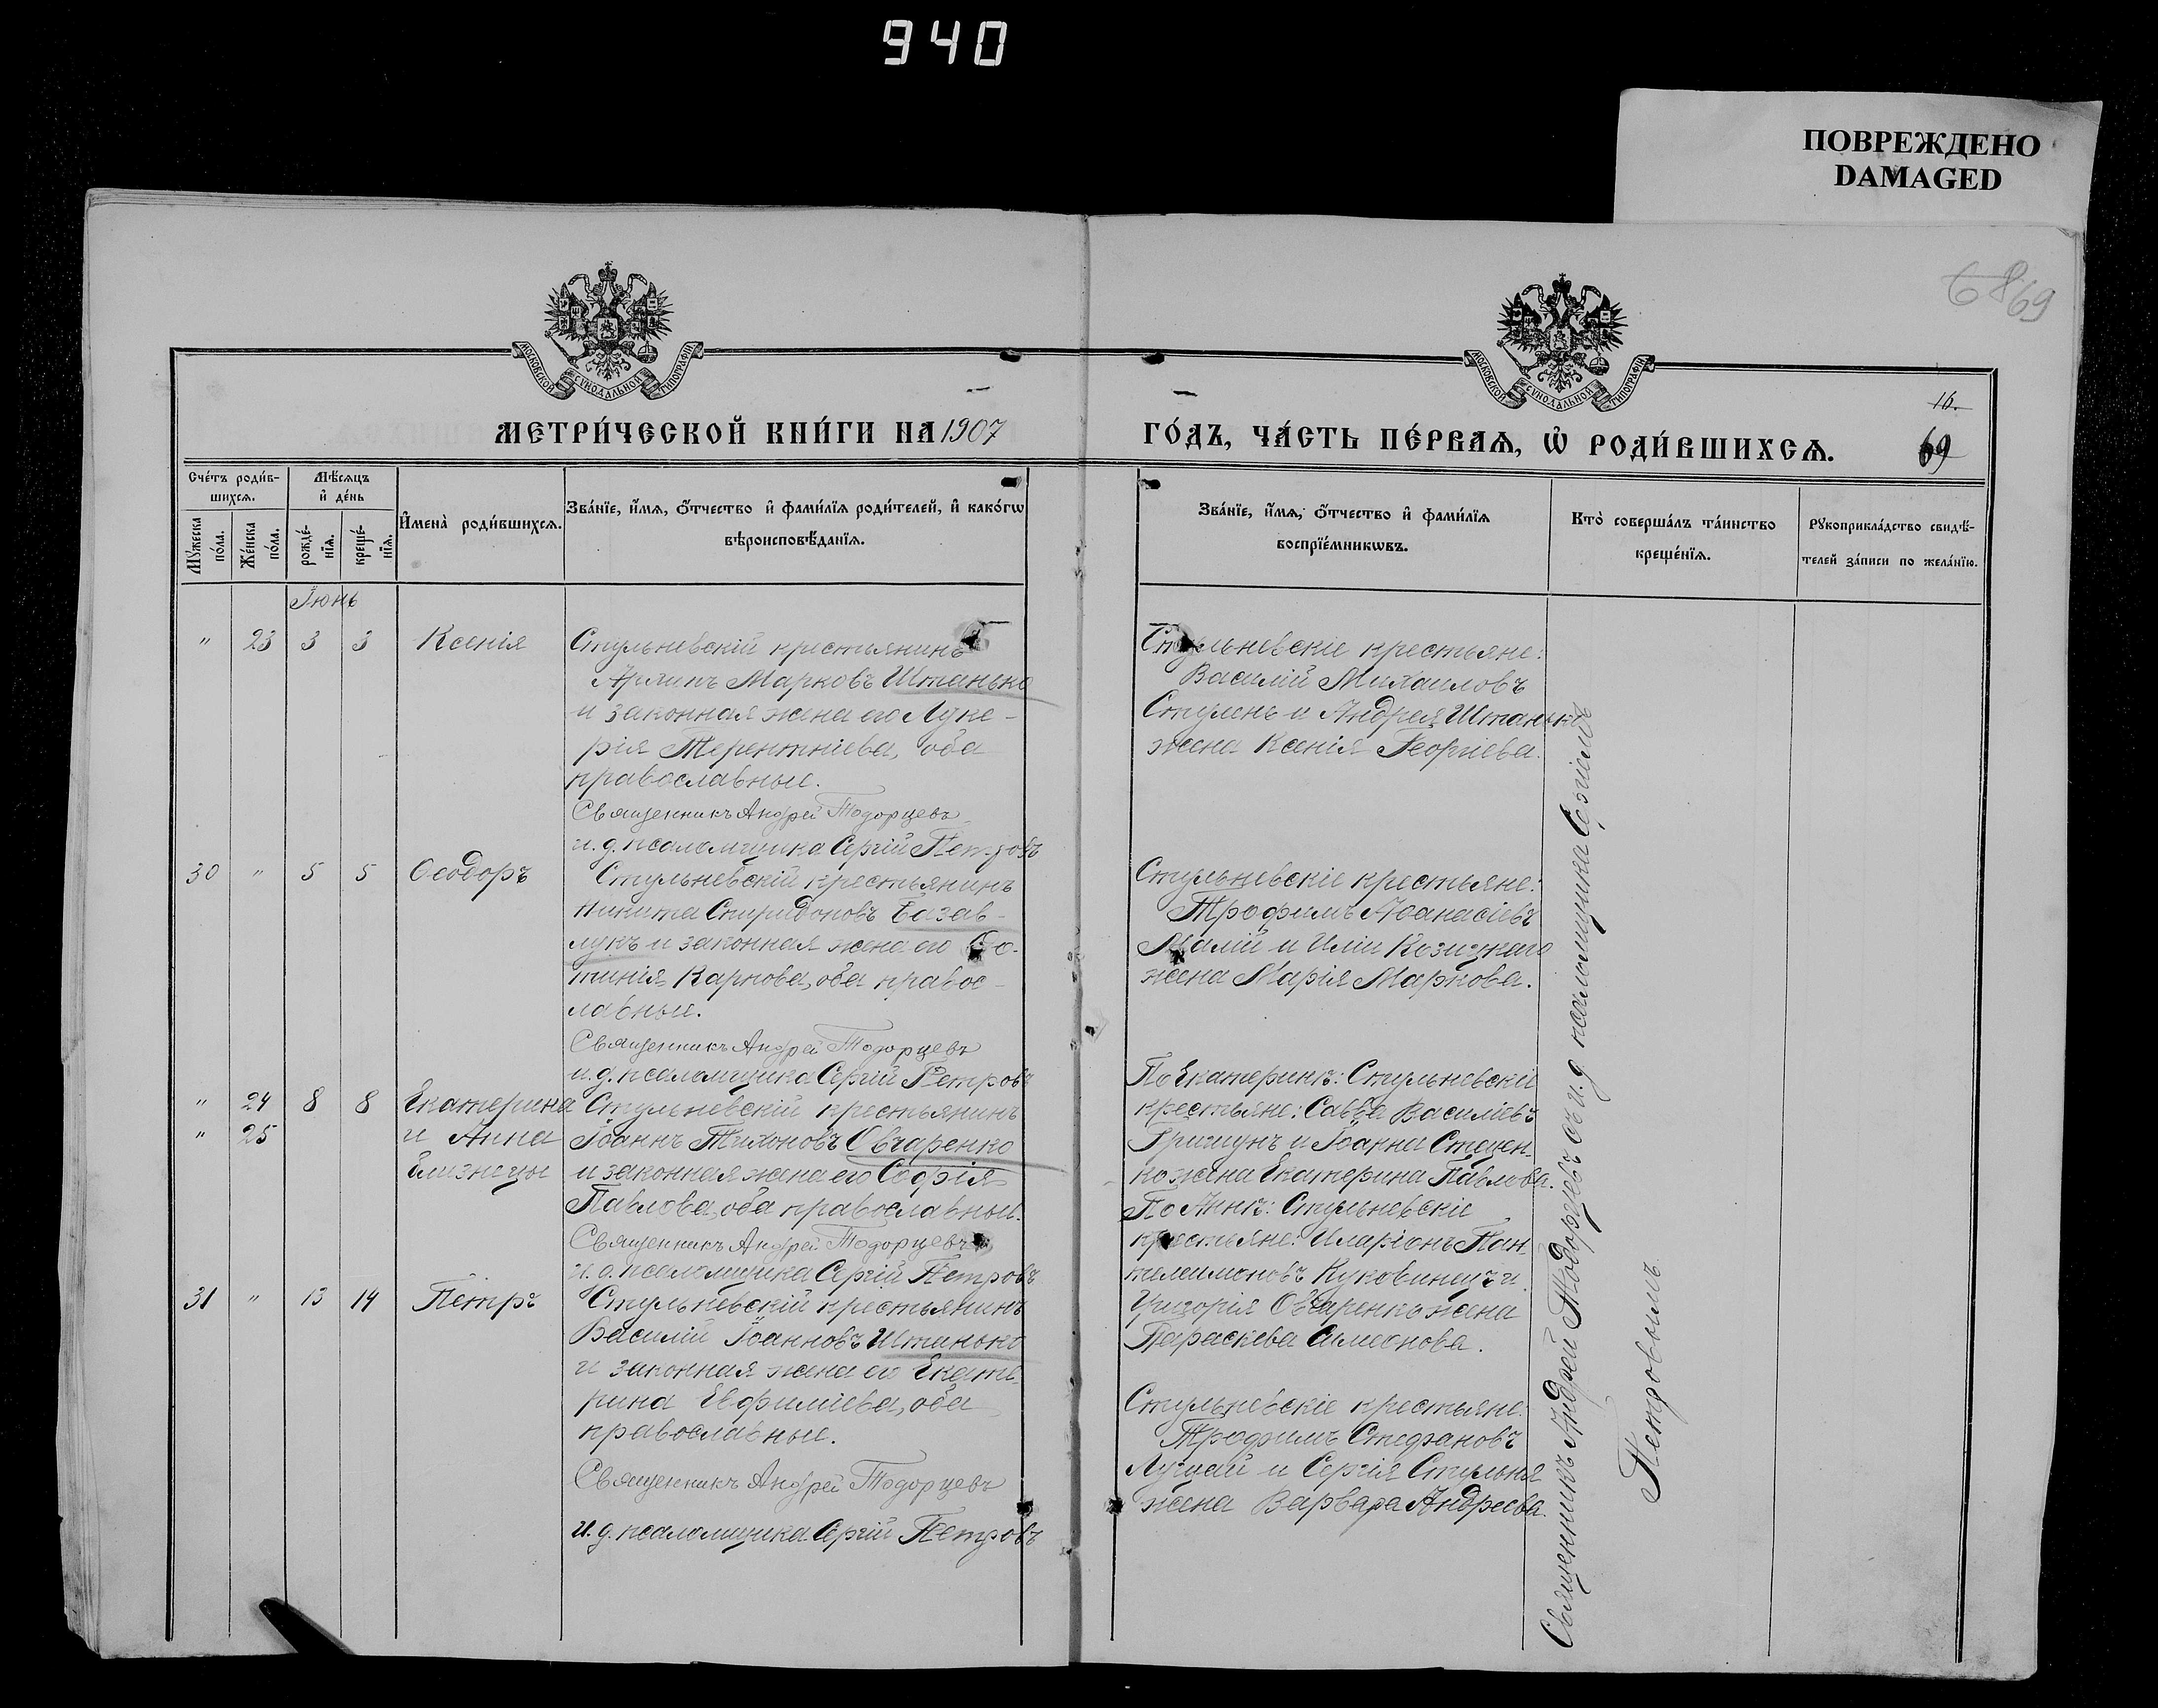 940
ПОВРЕЖДЕНО
DAMAGED
68 69
МОСКОВСКОЙ СѴНОДАЛЬНОЙ ТИПОГРАФІИ
МОСКОВСКОЙ СѴНОДАЛЬНОЙ ТИПОГРАФІИ
16.
МЕТРИ́ЧЕСКОЙ КНИ́ГИ НА 1907
ГО́ДЪ, ЧА́СТЬ ПЕ́РВАѦ, Ѡ҆ РОДИ́ВШИХСѦ.
69
Сче́тъ роди́в-
шихсѧ.
Мѣ́сѧцъ
и҆ де́нь
Мꙋ́жеска
по́ла.
Же́нска
по́ла.
рожде́-
нїѧ.
креще́-
нїѧ.
И҆мена̀ роди́вшихсѧ.
Зва́нїе, и҆́мѧ, ѻ҆́тчество и҆ фами́лїѧ роди́телей, и҆ како́гѡ
вѣроисповѣ́данїѧ.
Зва́нїе, и҆́мѧ, ѻ҆́тчество и҆ фами́лїѧ
воспрїе́мникѡвъ.
Кто̀ соверша́лъ та́инство
креще́нїѧ.
Рꙋкоприкла́дство свидѣ́-
телей за́писи по жела́нїю.
Іюнь
" 23 3 3 Ксенія
Стульневскій крестьянинъ
Марковъ Штанько
и законная жена его Луке-
рія Терентіева, оба
православные.
Священникъ Андрей Тодорцевъ
и. д. псаломщика Сергій Петровъ
Стульневскіе крестьяне:
Василій Михаиловъ
Стулень и Андрея Штанька
жена Ксенія Георгіева.
30 " 5 5 Ѳеодоръ
Стульневскій крестьянинъ
Никита Спиридоновъ Базав-
лукъ и законная жена его Фо-
тинія Карпова, оба правос-
лавные.
Священникъ Андрей Тодорцевъ
и. д. псаломщика Сергій Петровъ
Стульневскіе крестьяне:
Трофимъ Аѳанасіевъ
Малій и Иліи Козицкаго
жена Марія Маркова.
" 24 8 8 Екатерина
" 25 и Анна
близнецы
Стульневскій крестьянинъ
Іоаннъ Тихоновъ Овчаренко
и законная жена его Софія
Павлова, оба православные.
Священникъ Андрей Тодорцевъ
и. д. псаломщика Сергій Петровъ
По Екатеринѣ: Стульневскіе
крестьяне: Савва Василіевъ
Гришунъ и Іоанна Стецен-
ко жена Екатерина Павлова.
По Аннѣ: Стульневскіе
крестьяне: Иларіонъ Пан-
телеимоновъ Куковинецъ и
Григорія Овчаренко жена
Параскева Симеонова.
31 " 13 14 Петръ
Стульневскій крестьянинъ
Василій Іоанновъ Штанько
и законная жена его Екате-
рина Евфиміева, оба
православные.
Священникъ Андрей Тодорцевъ
И. д. псаломщика Сергій Петровъ
Стульневскіе крестьяне:
Трофимъ Стефановъ
Лущай и Сергія Стульня
жена Варвара Андреева.
Священникъ Андрей Тодорцевъ съ и. д псаломщика Сергіемъ
Петровымъ